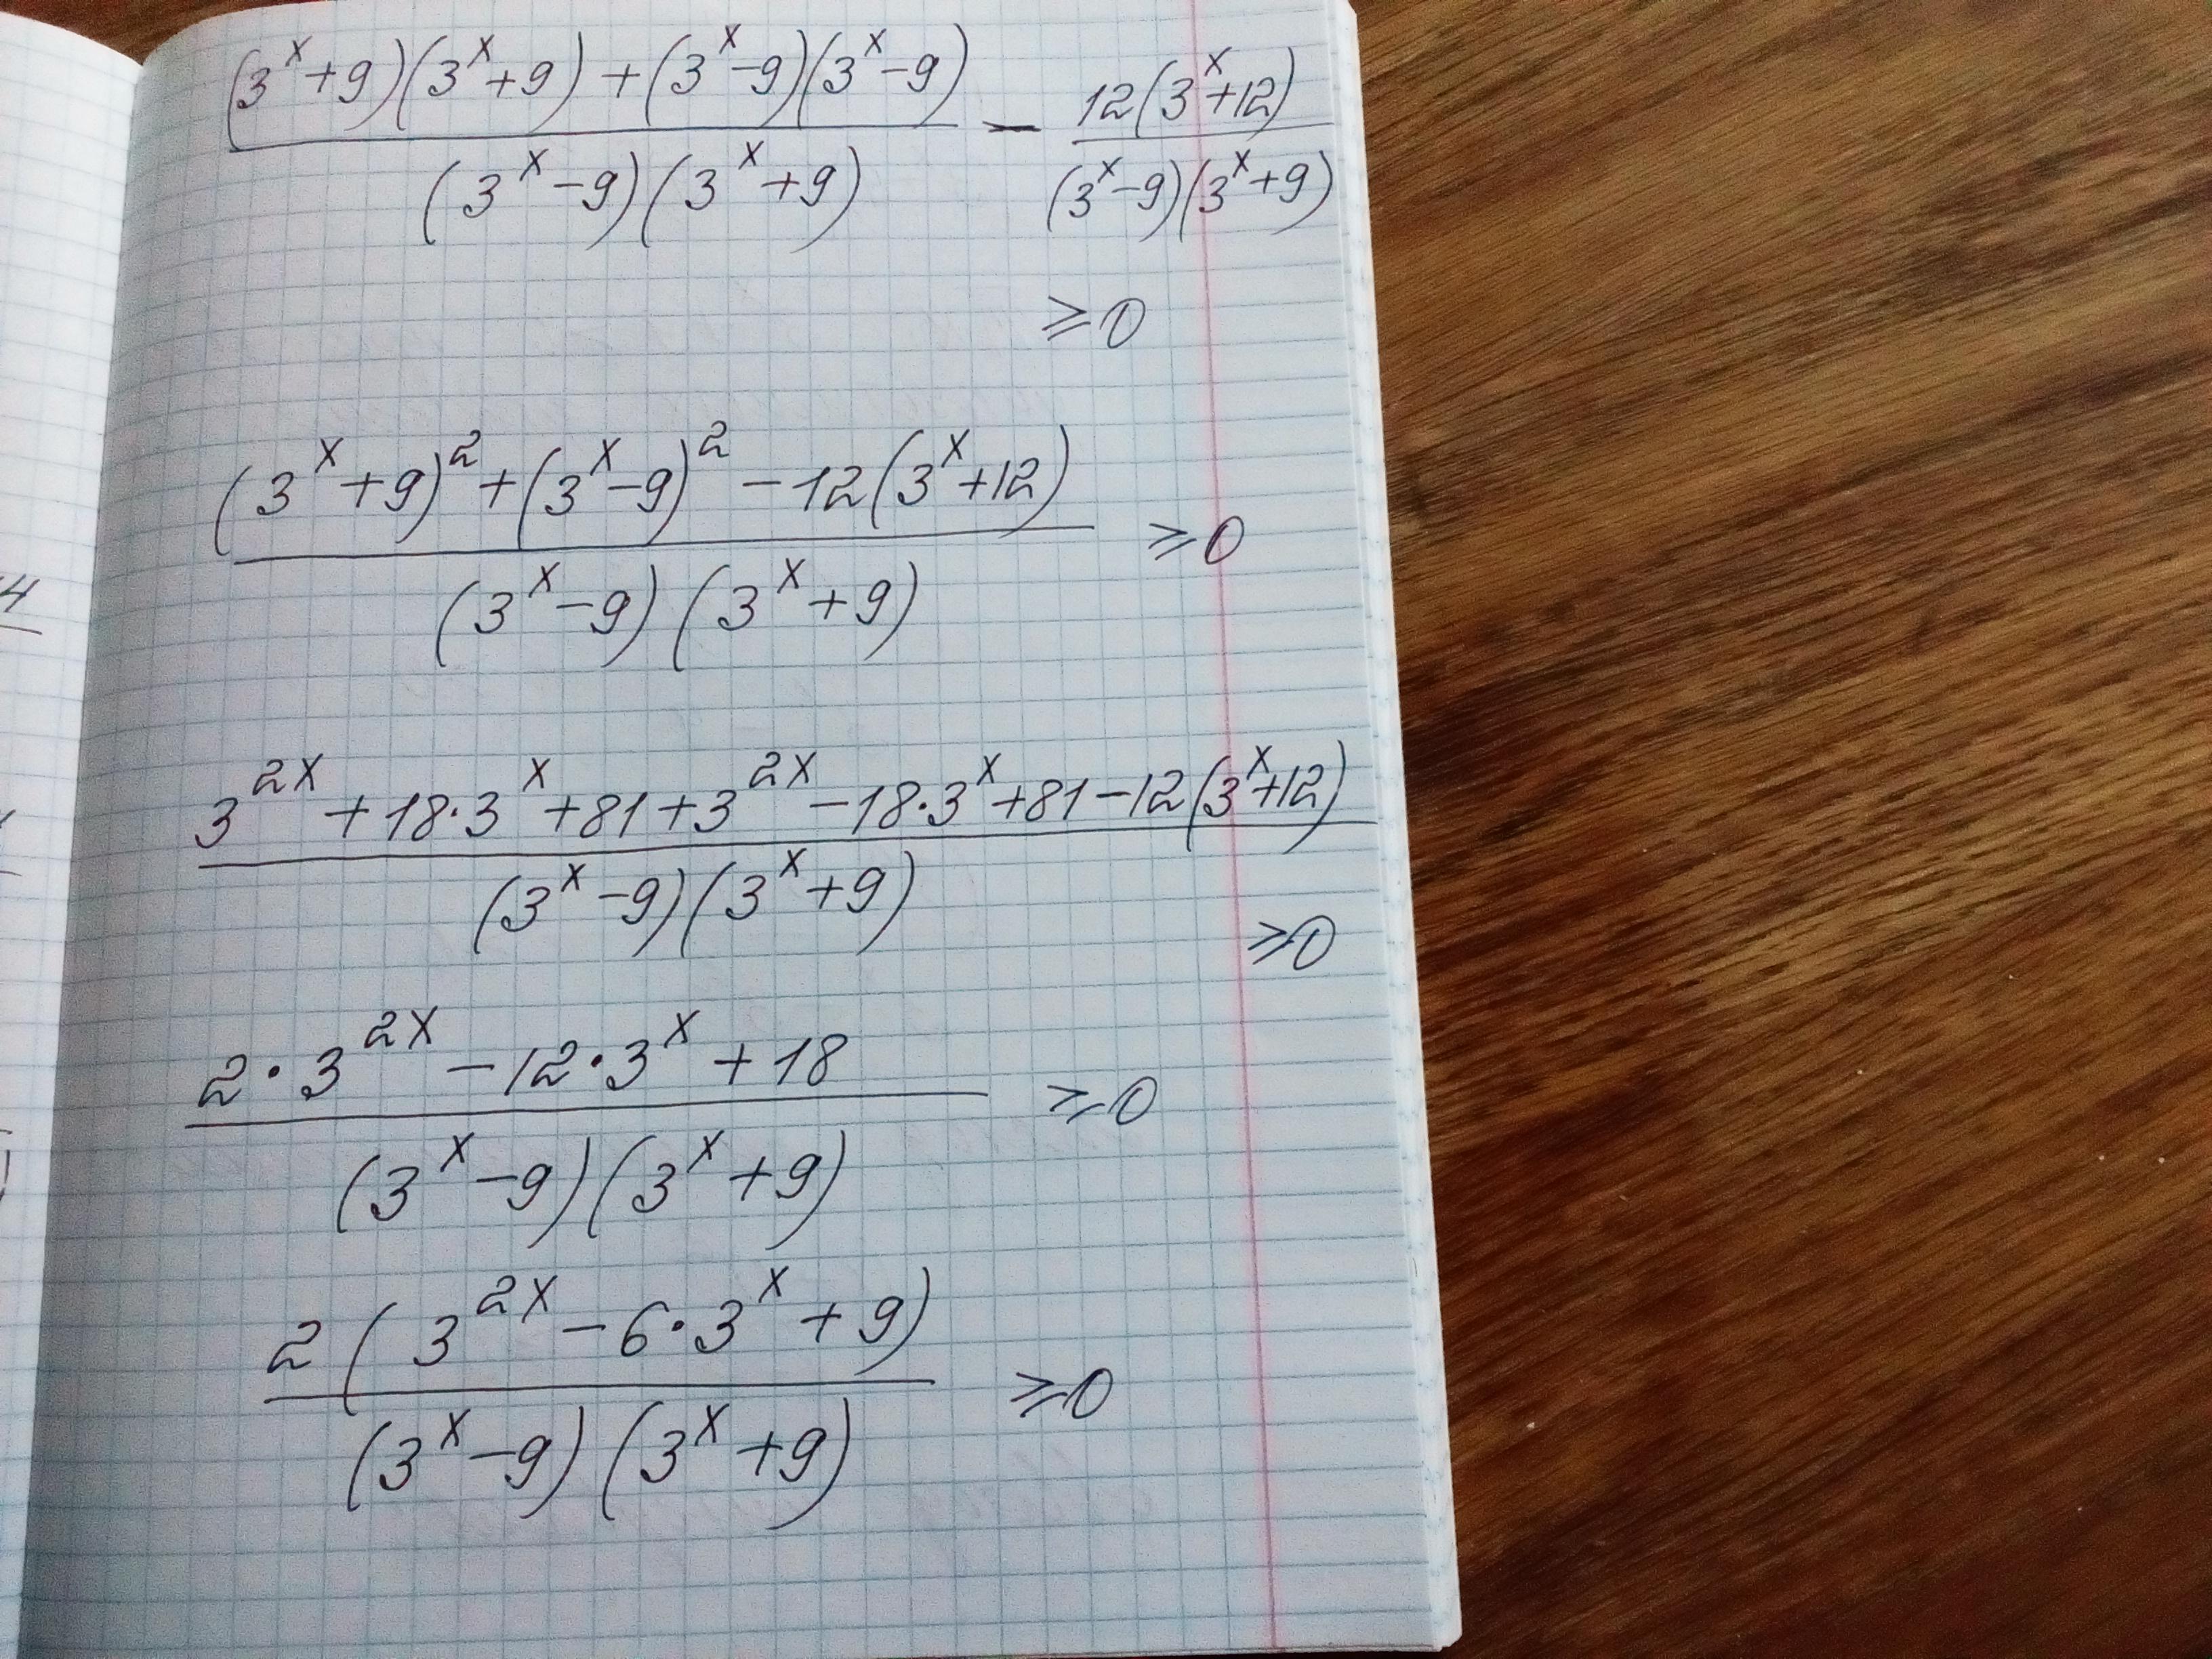 (3^x+9)(3^x+9)+(3^x-9)(3^x-9) / (3^x-9)(3^x+9) - 12(3^x+12) / (3^x-9)(3^x+9)
⩾0
(3^x+9)^2+(3^x-9)^2-12(3^x+12) / (3^x-9)(3^x+9) ⩾0
3^2x+18·3^x+81+3^2x-18·3^x+81-12(3^x+12) / (3^x-9)(3^x+9)
⩾0
2·3^2x-12·3^x+18 / (3^x-9)(3^x+9) ⩾0
2(3^2x-6·3^x+9) / (3^x-9)(3^x+9) ⩾0